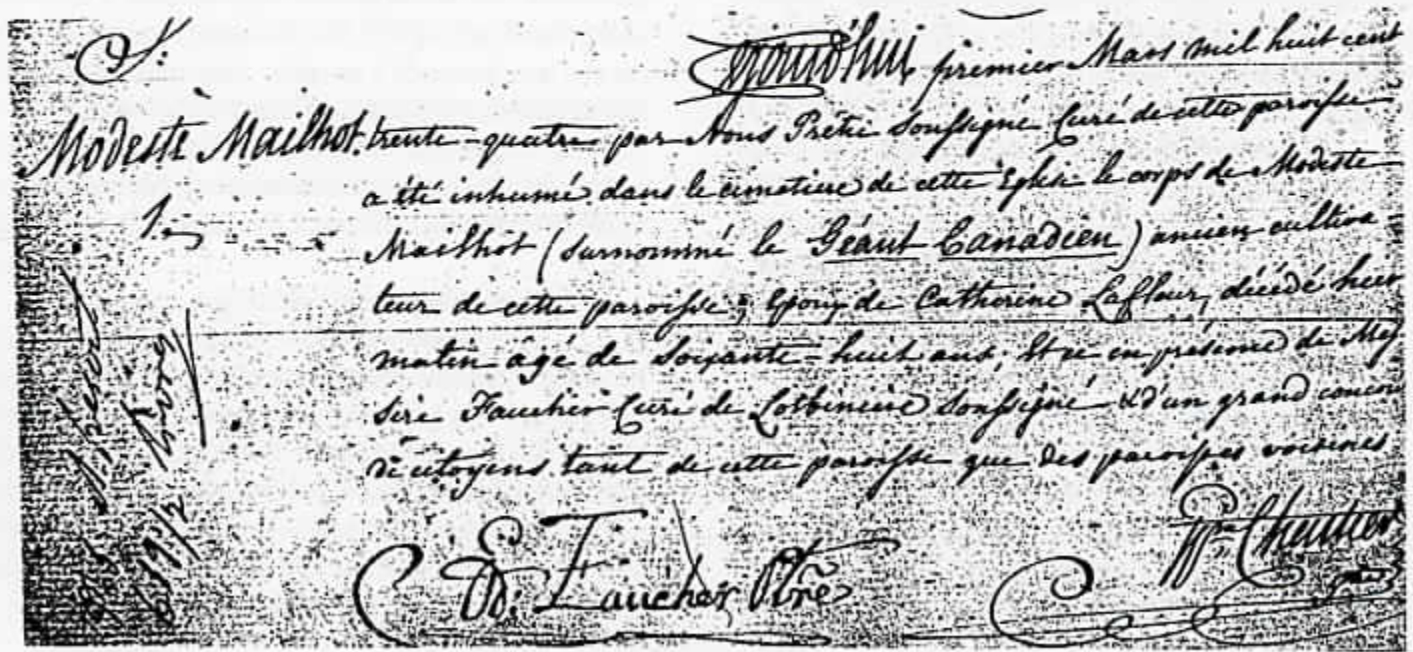 S.
Modeste Mailhot.
1.
Ajourd'hui premier Mars mil huit cent
trente-quatre par Nous Prêtre soussigné Curé de cette paroisse
a été inhumé dans le cimetiere de cette Eglise le corps de Modeste
Mailhot (surnommé le Géant Canadien) ancien cultiva
teur de cette paroisse; Epoux de Catherine Lafleur, décédé hier
matin âgé de soixante-huit ans; Et ce en présence de Mes
sire Faucher Curé de Lotbinière soussigné & d'un grand concou
de citoyens tant de cette paroisse que des paroisses voisines
Ed. Faucher Ptre